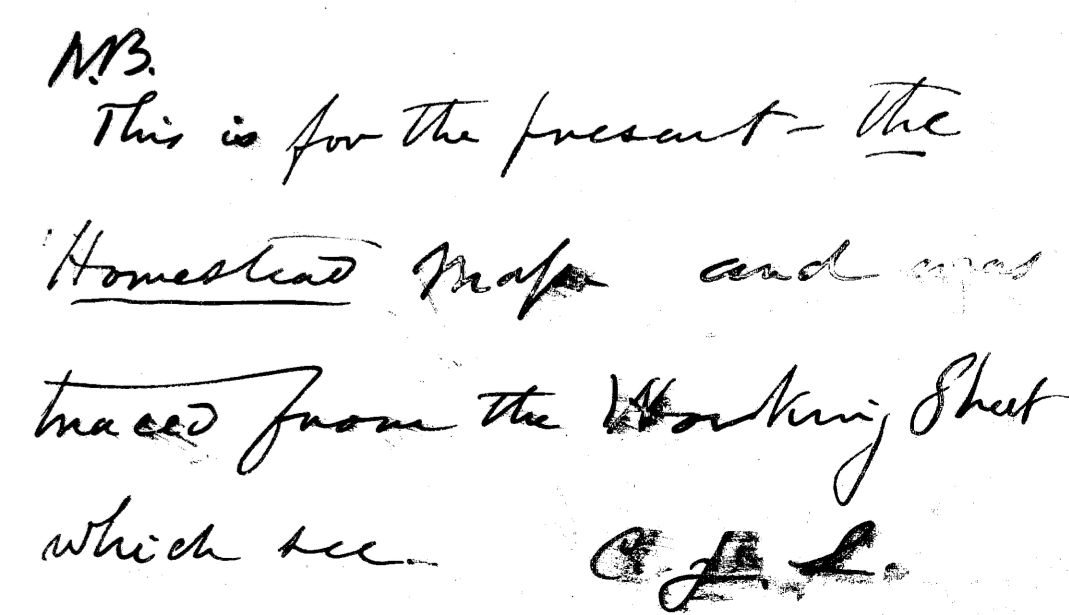 N.B.
This is for the present - the
Homestead Map and was
traced from the Working Sheet
which see. C. J. L.